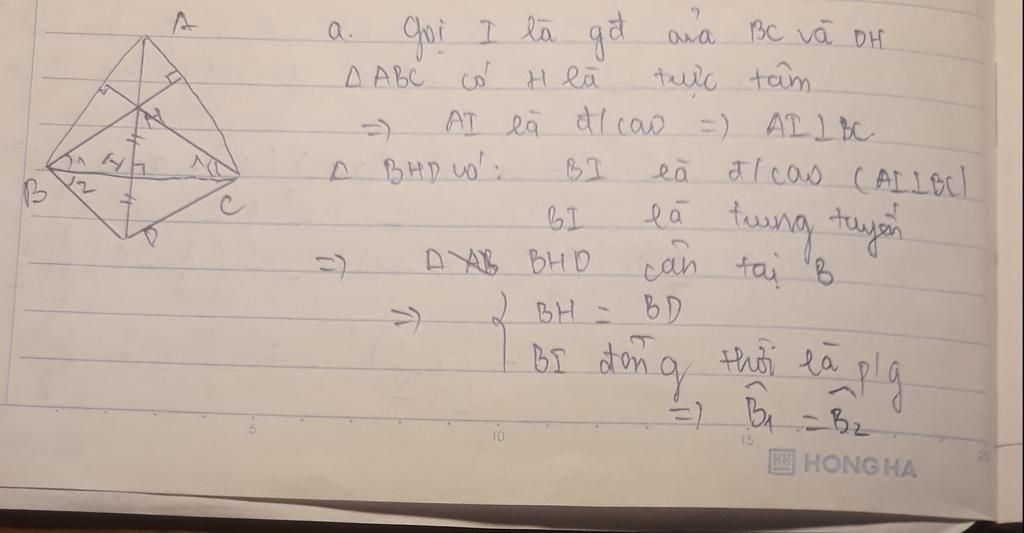 A
a. Gọi I là gđ của BC và DH
ΔABC có H là trực tâm
=> AI là đ/cao => AI⊥BC
Δ BHD có: BI là đ/cao (AI⊥BC)
BI là trung tuyến
=> Δ BHD cân tại B
=> { BH = BD
BI đồng thời là p/g
=> B̂1 = B̂2
H
1
I
1
B
2
C
D
5
10
15
20
HH HONG HA